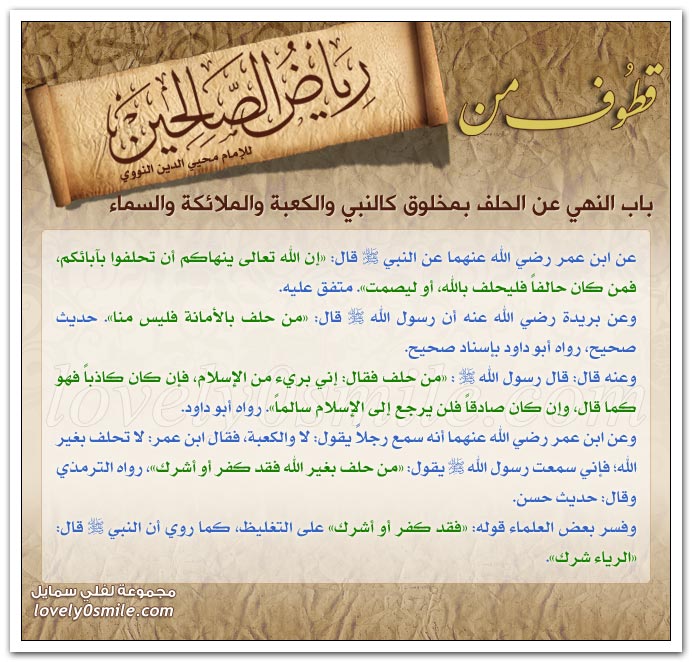 قطوف من
رياض الصالحين
للإمام محيي الدين النووي
باب النهي عن الحلف بمخلوق كالنبي والكعبة والملائكة والسماء
عن ابن عمر رضي الله عنهما عن النبي ﷺ قال: «إن الله تعالى ينهاكم أن تحلفوا بآبائكم،
فمن كان حالفاً فليحلف بالله، أو ليصمت». متفق عليه.
وعن بريدة رضي الله عنه أن رسول الله ﷺ قال: «من حلف بالأمانة فليس منا». حديث
صحيح، رواه أبو داود بإسناد صحيح.
وعنه قال: قال رسول الله ﷺ : «من حلف فقال: إني بريء من الإسلام، فإن كان كاذباً فهو
كما قال، وإن كان صادقاً فلن يرجع إلى الإسلام سالماً». رواه أبو داود.
وعن ابن عمر رضي الله عنهما أنه سمع رجلاً يقول: لا والكعبة، فقال ابن عمر: لا تحلف بغير
الله؛ فإني سمعت رسول الله ﷺ يقول: «من حلف بغير الله فقد كفر أو أشرك»، رواه الترمذي
وقال: حديث حسن.
وفسر بعض العلماء قوله: «فقد كفر أو أشرك» على التغليظ، كما روي أن النبي ﷺ قال:
«الرياء شرك».
lovely0smile.com
مجموعة لفلي سمايل
lovely0smile.com